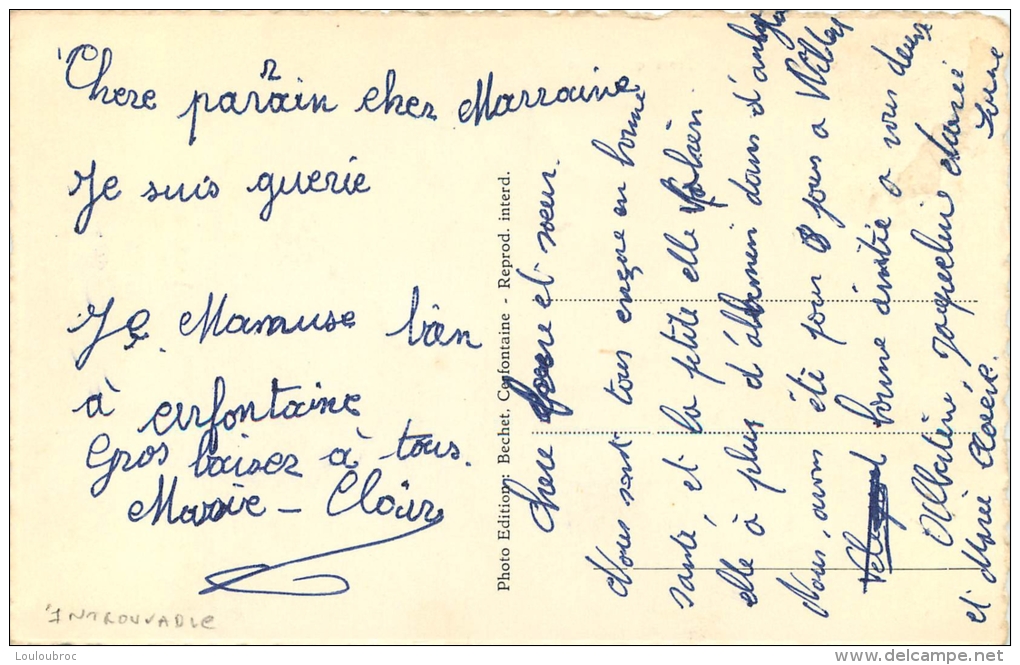 Chere parain cher Marraine
Je suis guerie
Je Mamuse bien
à cerfontaine
Gros baisez à tous.
Marie - Clair
INTROUVABLE
Photo Editions Bechet, Cerfontaine - Reprod. interd.
Chere frere et soeur.
Nous sont tous encore en bonne
santé, et la petite elle va bien.
elle à plus d'albumein dans d'
Nous, avons été pour 8 jours a
bonne amitie a vous deux
Albertine, Jaqueline Marie
et Marie Claire.
Louloubroc
www.delcampe.net